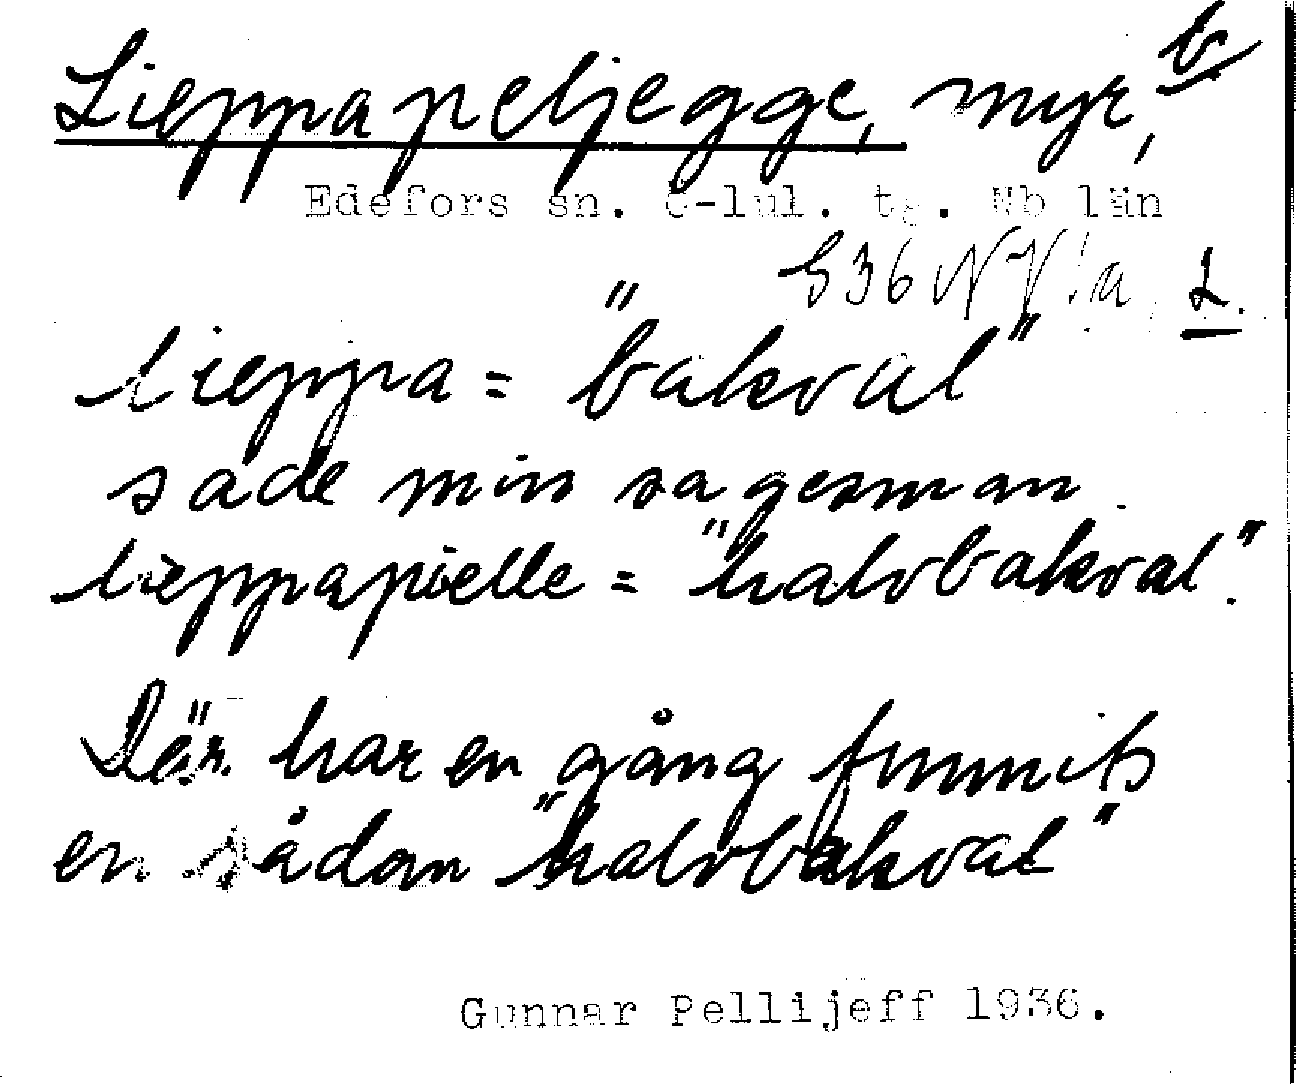 Lieppapeljegge, myr, b
Edefors sn. Ö-lul. tg. Nb län
S36NV!a L.
lieppa = "bakval"
sade min sagesman.
lieppapielle = "halvbakval".
Där har en gång funnits
en sådan "halvbakval"
Gunnar Pellijeff 1936.